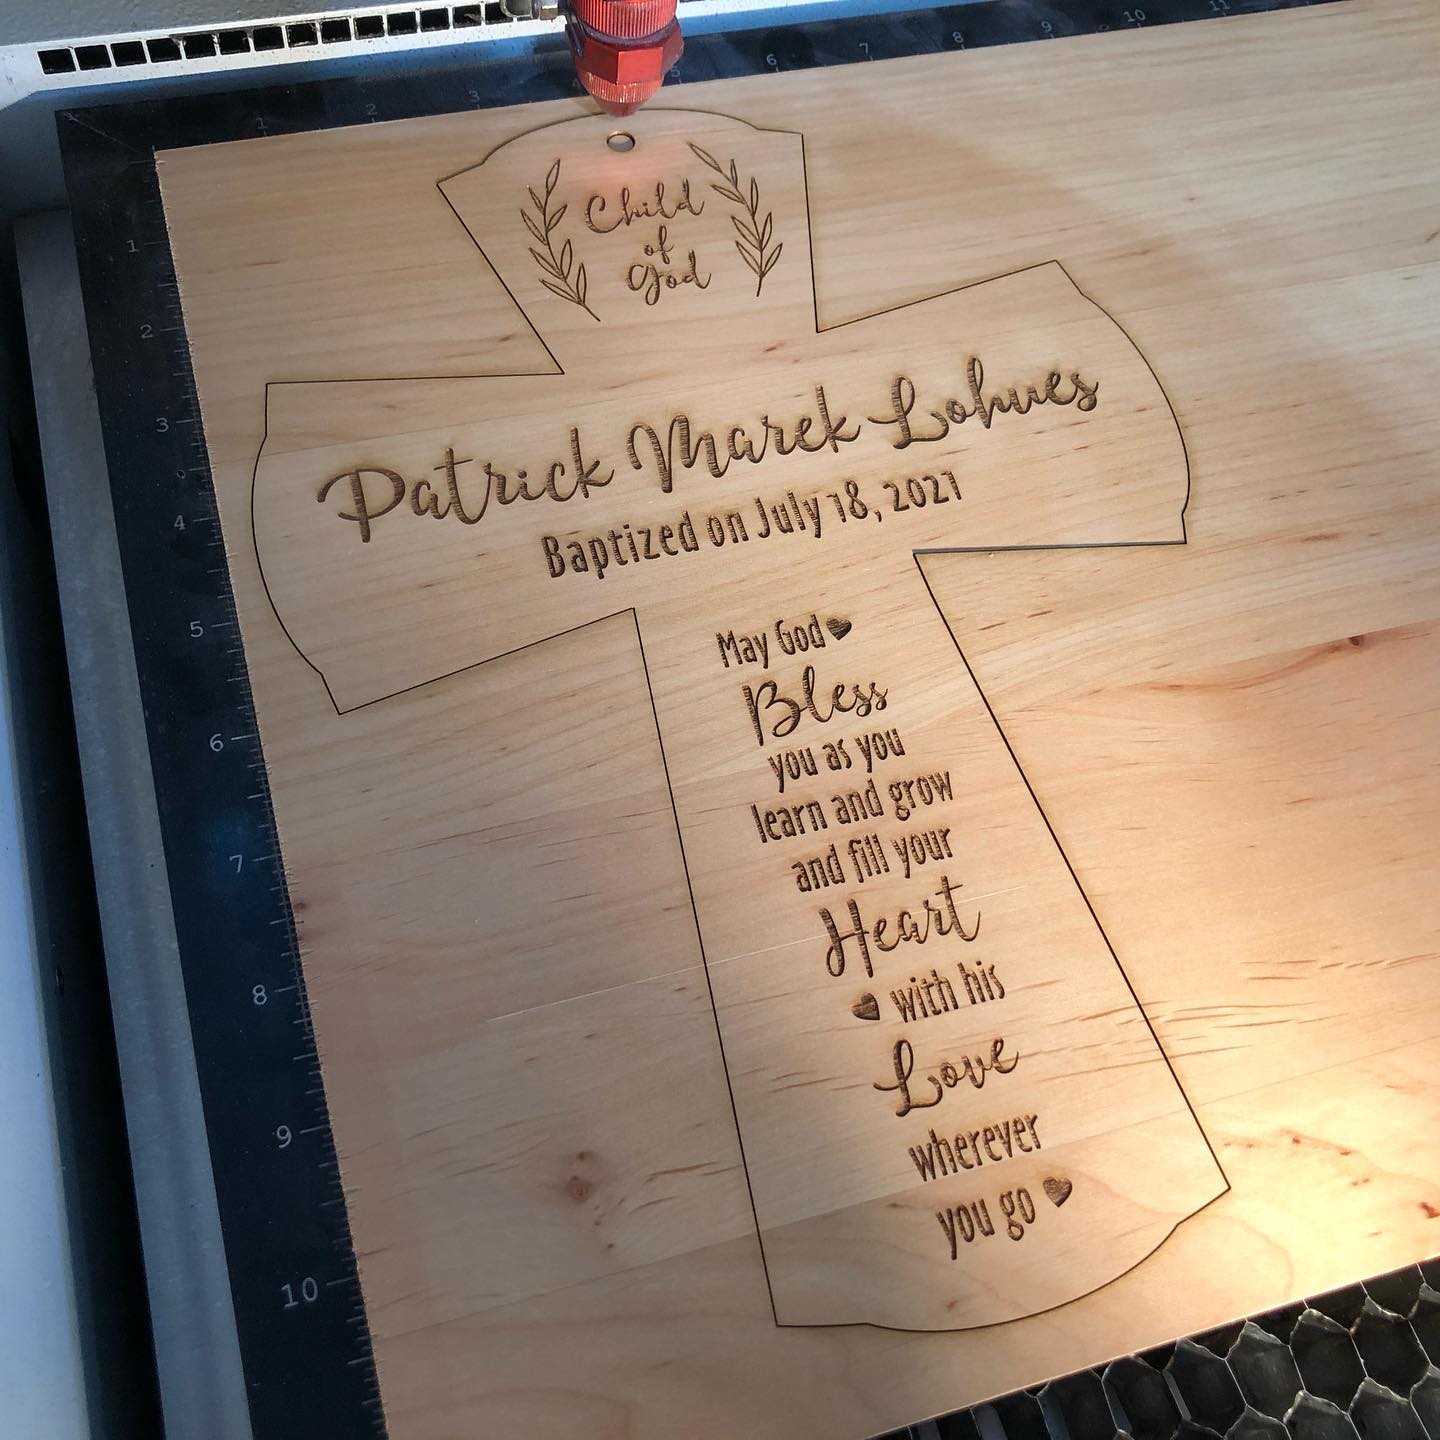 1 2 3 5 6 7 8 9 10 11
Child
of
God
1
2
3
4
5
6
7
8
9
10
Patrick Marek Lohues
Baptized on July 18, 2021
May God
Bless
you as you
learn and grow
and fill your
Heart
with his
Love
wherever
you go